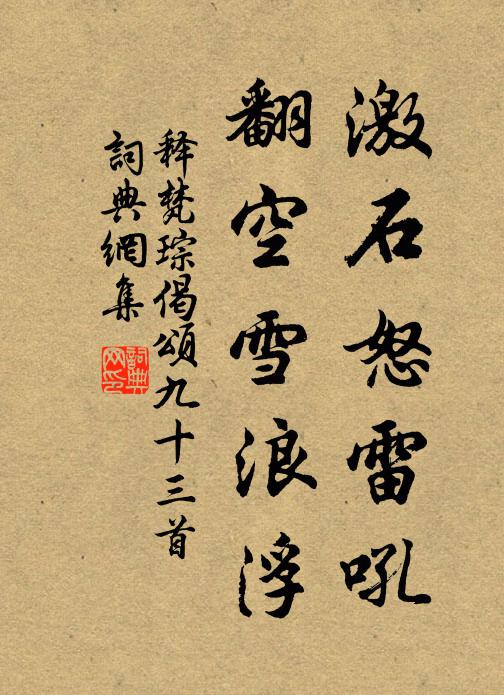 激石怒雷吼
翻空雪浪浮
释梵琮偈頌九十三首
詞典網集
詞典網印